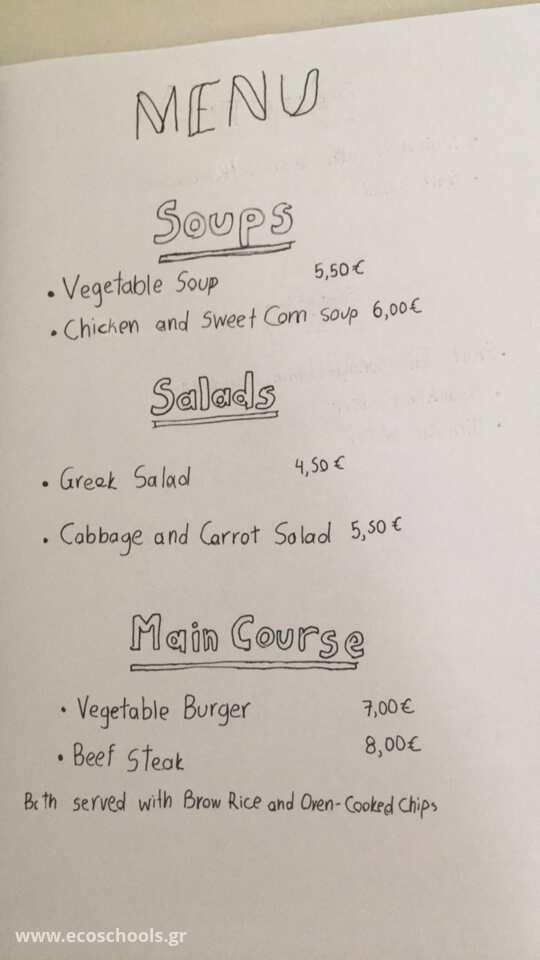 MENU
Soups
• Vegetable Soup 5,50€
• Chicken and Sweet Corn soup 6,00€
Salads
• Greek Salad 4,50€
• Cabbage and Carrot Salad 5,50€
Main Course
• Vegetable Burger 7,00€
• Beef Steak 8,00€
Both served with Brow Rice and Oven-Cooked Chips
www.ecoschools.gr